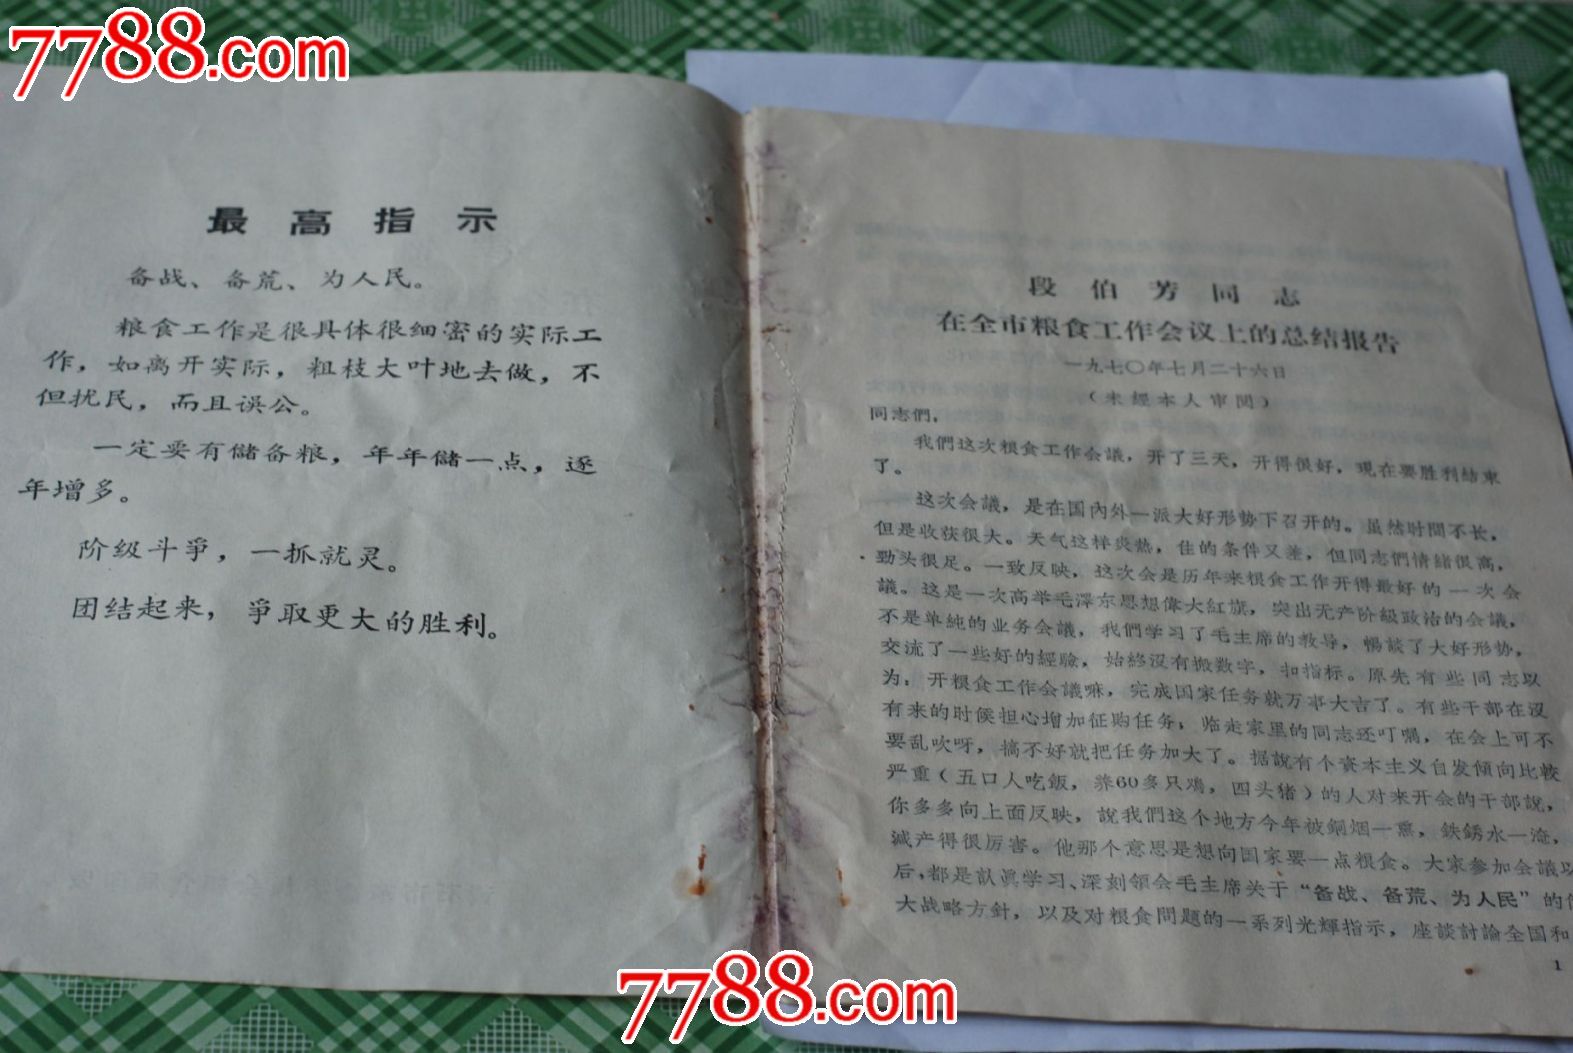 7788.com
最高指示
备战、备荒、为人民。
粮食工作是很具体很细密的实际工
作，如离开实际，粗枝大叶地去做，不
但扰民，而且误公。
一定要有儲备粮，年年儲一点，逐
年增多。
阶级斗爭，一抓就灵。
团结起来，爭取更大的胜利。
段伯芳同志
在全市粮食工作会议上的总结报告
一九七〇年七月二十六日
（未經本人审閱）
同志們，
我們这次粮食工作会議，开了三天，开得很好，現在要胜利結束
了。
这次会議，是在国內外一派大好形势下召开的。虽然时間不长，
但是收获很大。天气这样炎熱，住的条件又差，但同志們情緒很高，
勁头很足。一致反映，这次会是历年来粮食工作开得最好的一次会
議。这是一次高举毛澤东思想偉大紅旗，突出无产阶級政治的会議，
不是单純的业务会議，我們学习了毛主席的教导，暢談了大好形势，
交流了一些好的經驗，始終沒有搬数字，扣指标。原先有些同志以
为：开粮食工作会議嘛，完成国家任务就万事大吉了。有些干部在沒
有来的时候担心增加征购任务，临走家里的同志还叮嘱，在会上可不
要乱吹呀，搞不好就把任务加大了。据說有个資本主义自发傾向比較
严重（五口人吃飯，养60多只鸡，四头猪）的人对来开会的干部說，
你多多向上面反映，說我們这个地方今年被銅烟一熏，鉄銹水一淹，
減产得很厉害。他那个意思是想向国家要一点粮食。大家参加会議以
后，都是認真学习、深刻領会毛主席关于“备战、备荒、为人民”的伟
大战略方針，以及对粮食問題的一系列光輝指示，座談討論全国和
1
7788.com